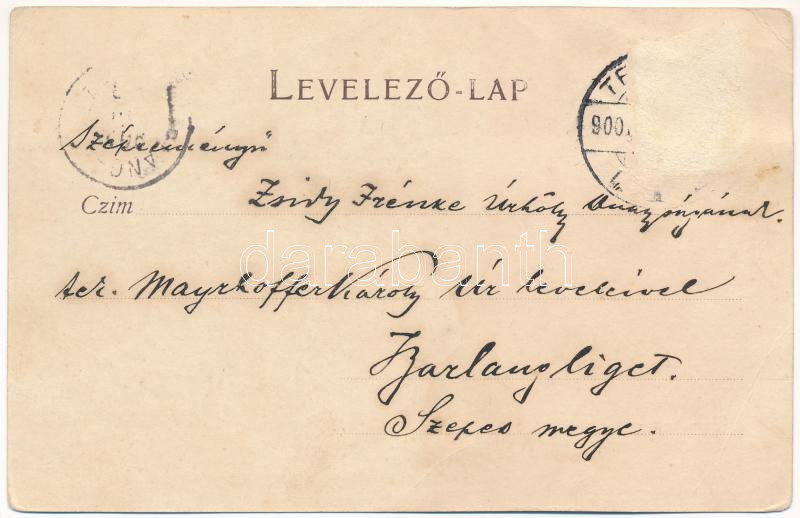 LEVELEZŐ-LAP
900
Szépreményű
Czim Zsidy Irénke Úrhölgy Ő nagyságának.
tek. Mayrhoffer Károly úr leveleivel
Barlangliget.
Szepes megye.
darabanth